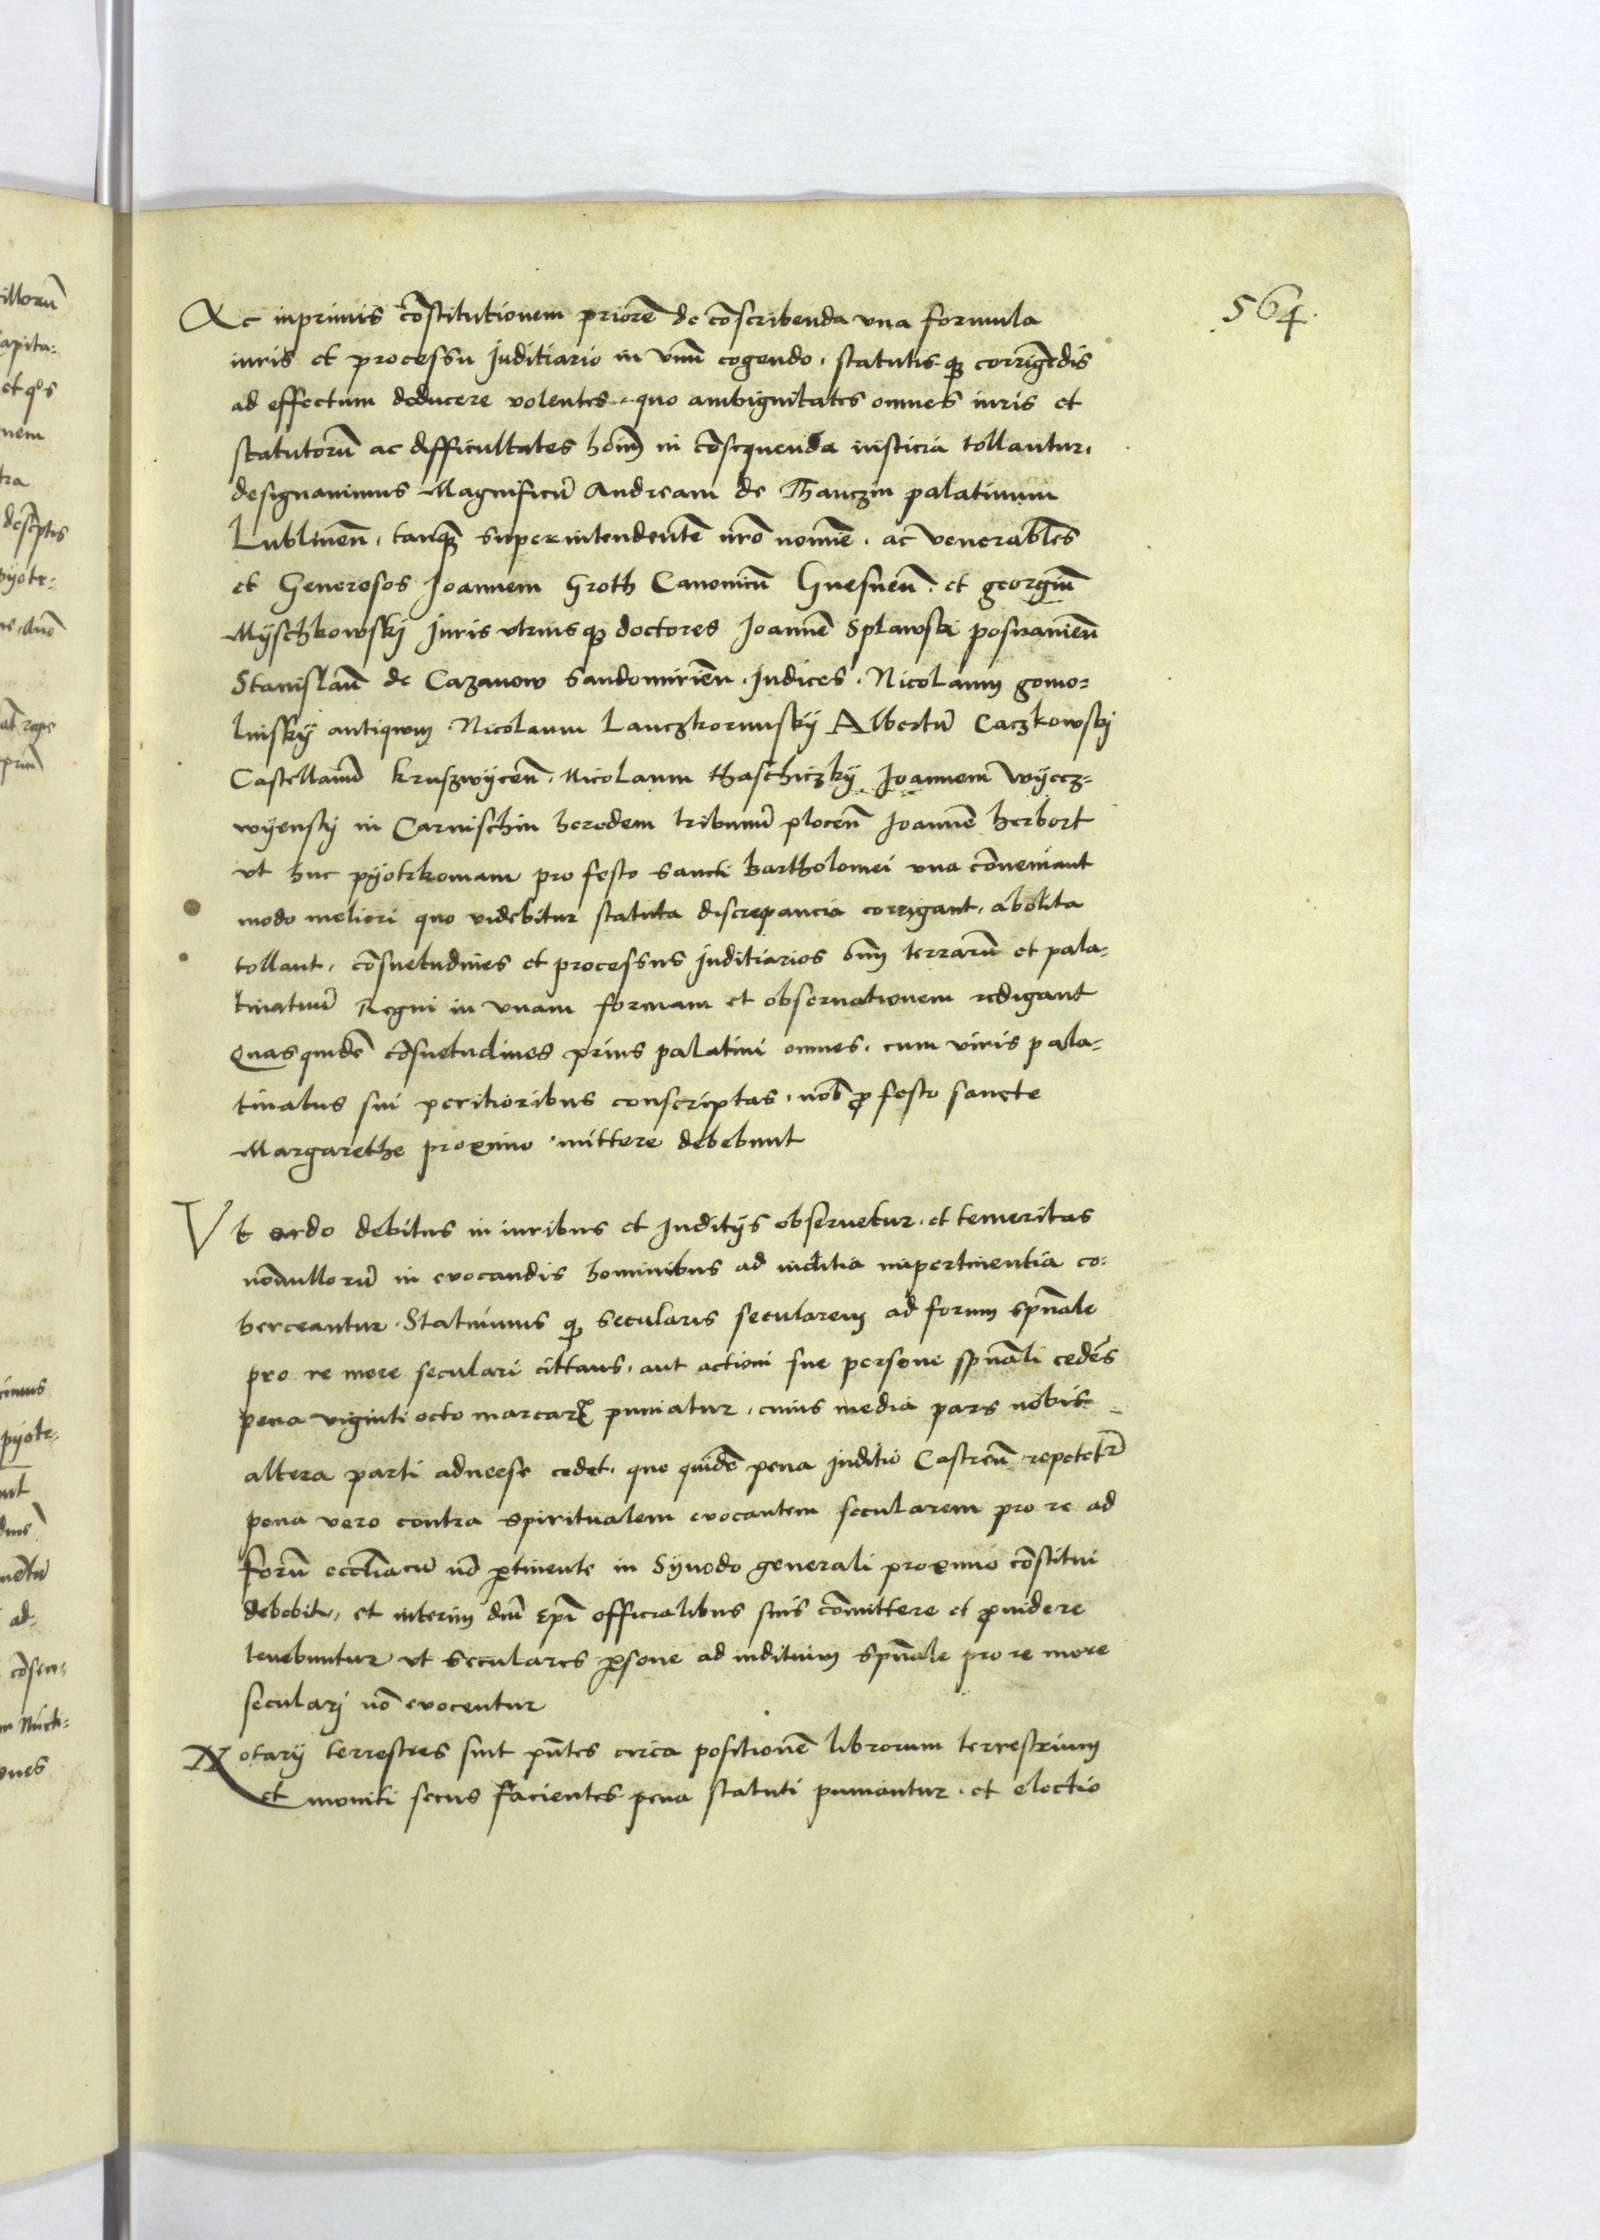 564
Ac inprimis cõstitutionem priorẽ de cõscribenda vna formula
iuris et processu Juditiario in vnũ cogendo, statutisq₃ corrigẽdis
ad effectum deducere volentes, quo ambiguitates omnes iuris et
statutorũ ac difficultates hoĩm in cõsequenda iusticia tollantur,
designauimus Magnificũ Andream de Thanczin palatinum
Lublineñ, tanq̃ superintendentẽ nrõ nomiẽ, ac venerabl̃es
et Generosos Joannem Groth Canonicũ Gnesneñ, et georgiũ
Myschkowskj Juris vtriusq₃ doctores Joannẽ Splawski posnanieñ
Stanislaũ de Cazanow Sandomirieñ, Judices, Nicolaum gomo=
linsky antiqwm, Nicolaum Lanczkorunsky Albertũ Caczkowskj
Castellanũ kruszwyceñ, Nicolaum thaschiczky Joannem wyecz=
wyensky in Carnischin heredem tribunũ ploceñ Joannẽ herbort
vt huc pyotrkowiam pro festo sancti Bartholomei vna cõueniant
modo meliori quo videbitur statuta discrepancia corrigant, abolita
tollant, cõsuetudines et processus Juditiarios om̃ terrarũ et pala=
tinatuũ Regni in vnam formam et obseruationem redigant
Quas quidẽ cõsuetudines prius palatini omnes, cum viris pala=
tinatus sui peritioribus conscriptas, nob̃ ꝓ festo sancte
Margarethe proximo mittere debebunt
Vt ordo debitus in iuribus et Juditijs obseruetur, et temeritas
nõnullorũ in evocandis hominibus ad iuditia impertinentia co=
herceantur, Statuimus q₃ secularis secularem ad forum spũale
pro re mere seculari cittans, aut actioni sue persone spũali cedẽs
pena viginti octo marcarꝝ puniatur, cuius media pars nobis
altera parti adverse cedet, que quidẽ pena Juditio Castreñ repetetr̃
pena vero contra spiritualem evocantem secularem pro re ad
forũ eccl̃iacũ nõ ꝑtinente in Synodo generali proximo cõstitui
debebit, et interim dñi Ep̃i officialibus suis cõmittere et ꝓuidere
tenebuntur vt seculares ꝑsone ad iuditium spũale pro re mere
seculari nõ evocentur
Notarij terrestres sint pñtes circa positionẽ librorum terrestrium
et moniti secus facientes pena statuti puniantur, et electio